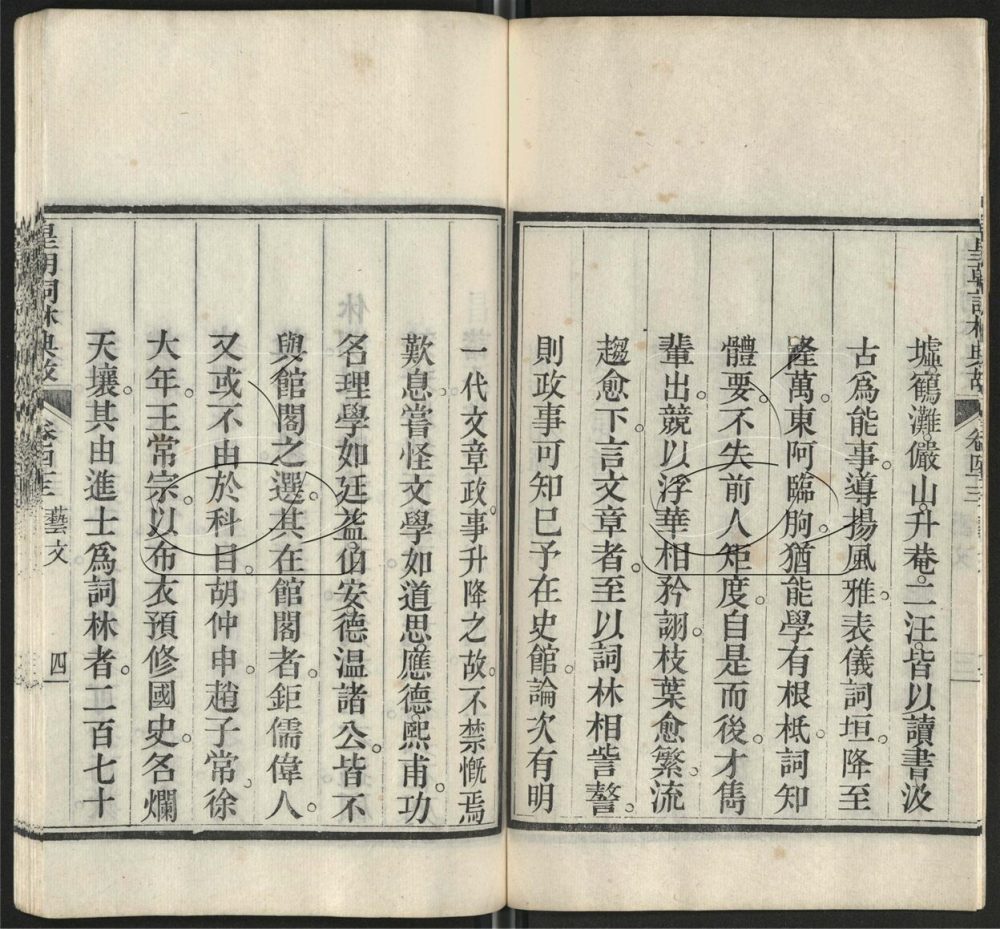 墟。鶴灘。儼山。升菴。二汪。皆以讀書汲
古爲能事。導揚風雅。表儀詞垣。降至
隆萬。東阿臨朐。猶能學有根柢。詞知
體要。不失前人矩度。自是而後。才雋
輩出。競以浮華相矜詡。枝葉愈繁。流
趨愈下。言文章者。至以詞林相訾謷。
則政事可知已。予在史館。論次有明
一代文章政事升降之故。不禁慨焉
歎息。嘗怪文學如道思。應德。熙甫。功
名理學如廷益。伯安。德温諸公。皆不
與館閣之選。其在館閣者。鉅儒偉人。
又或不由於科目。胡仲申。趙子常。徐
大年。王常宗。以布衣預修國史。名爛
天壤。其由進士爲詞林者。二百七十
皇朝詞林典故
藝文
四